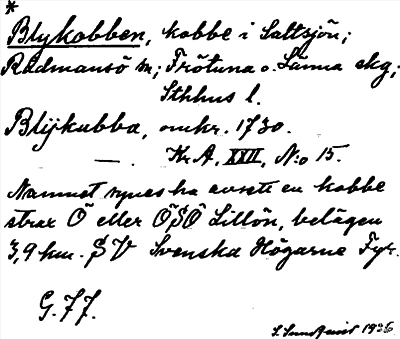 *
Blykobben, kobbe i Saltsjön;
Rådmansö sn; Frötuna o. Länna skg;
Sthlms l.
Blijkubba, omkr. 1730.
— . Kr. A, XXII, N:o 15.
Namnet synes ha avsett en kobbe
strax Ö eller ÖSÖ Lillön, belägen
3,9 km. SV Svenska Högarne Fyr.
G. F J.
1936